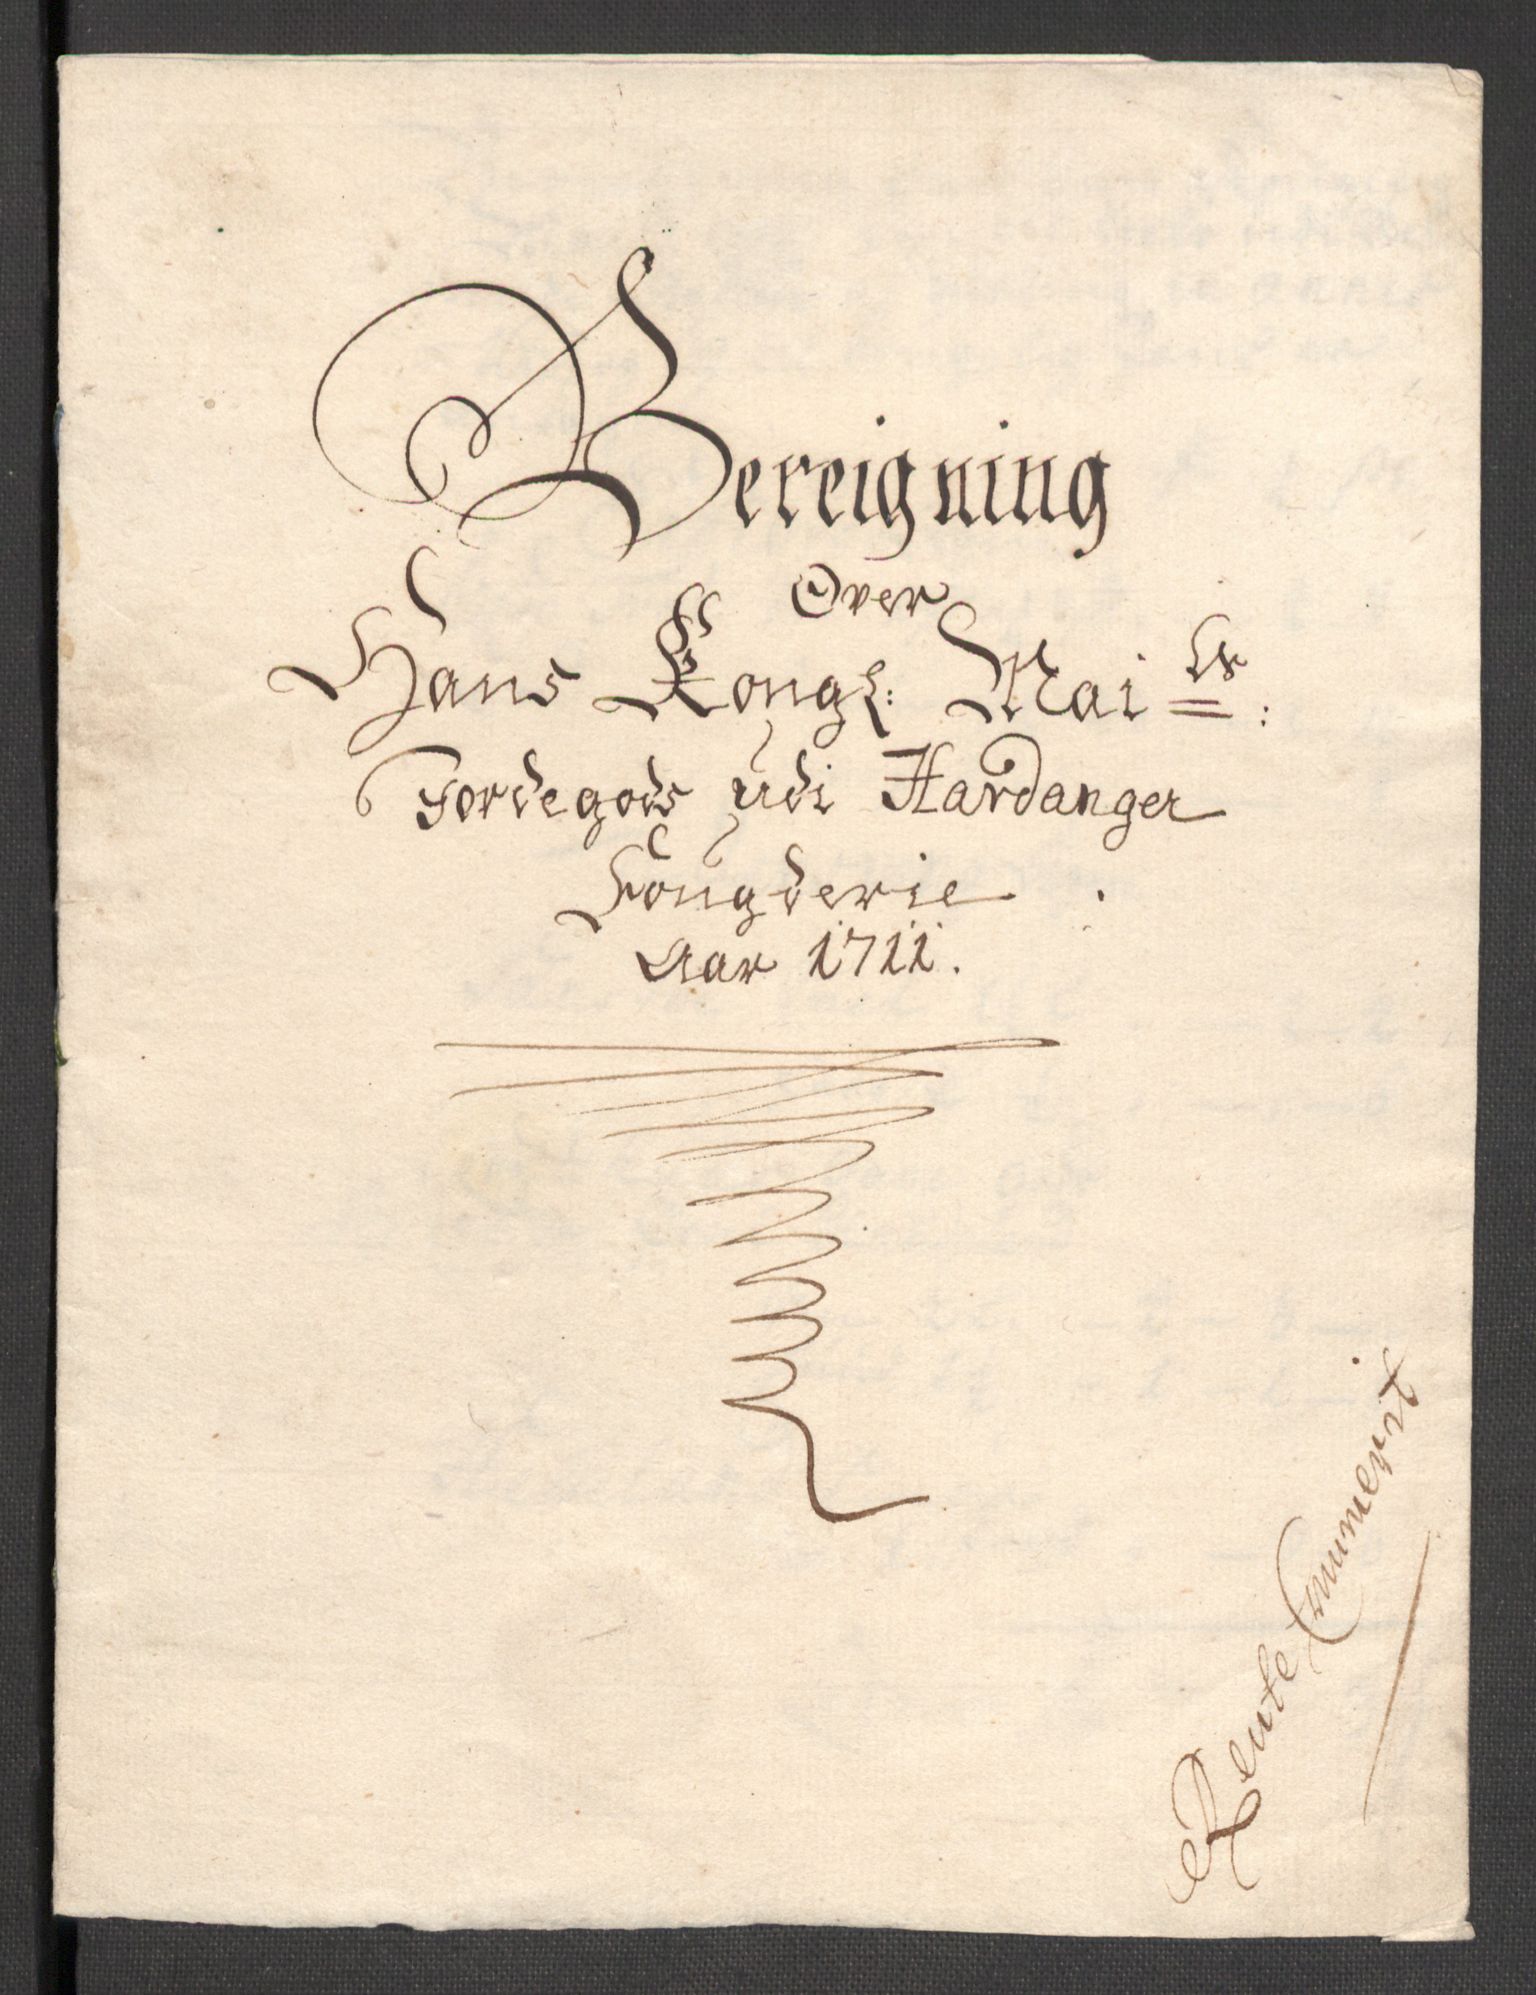 Bereigning
Over
Hans Kongl: Mai ts:
Jordegods udi Hardanger
Fougderie
Aar 1711.
Rente Cammerit